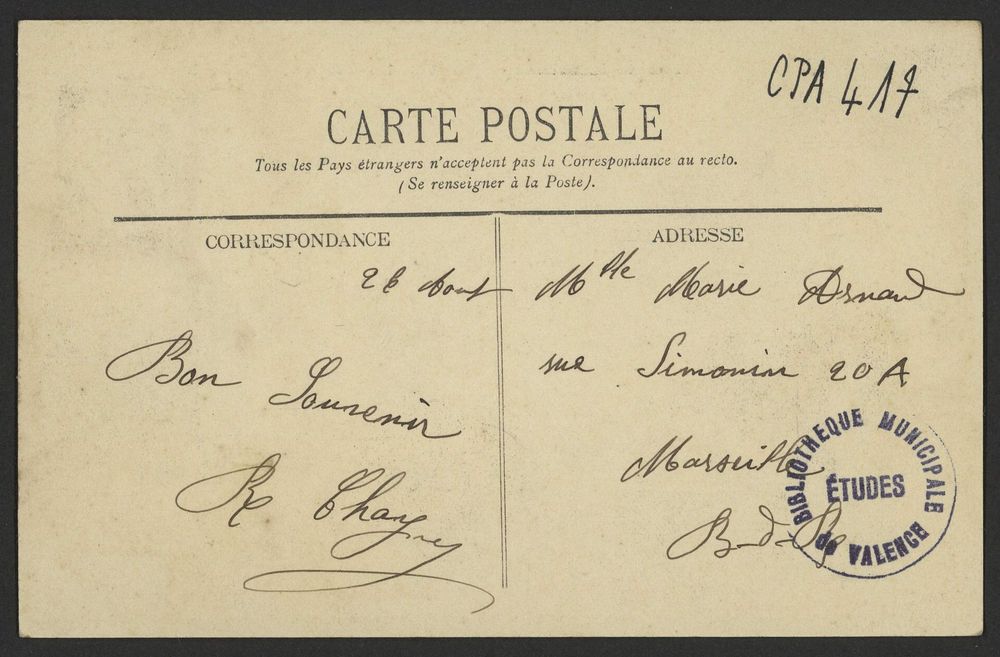 CPA 417
CARTE POSTALE
Tous les Pays étrangers n'acceptent pas la Correspondance au recto.
(Se renseigner à la Poste).
CORRESPONDANCE
26 Aout
Bon
Souvenir
ADRESSE
Mlle Marie Arnaud
rue Simonin 20 A
Marseille
B-d-R
BIBLIOTHEQUE MUNICIPALE
ÉTUDES
DE VALENCE